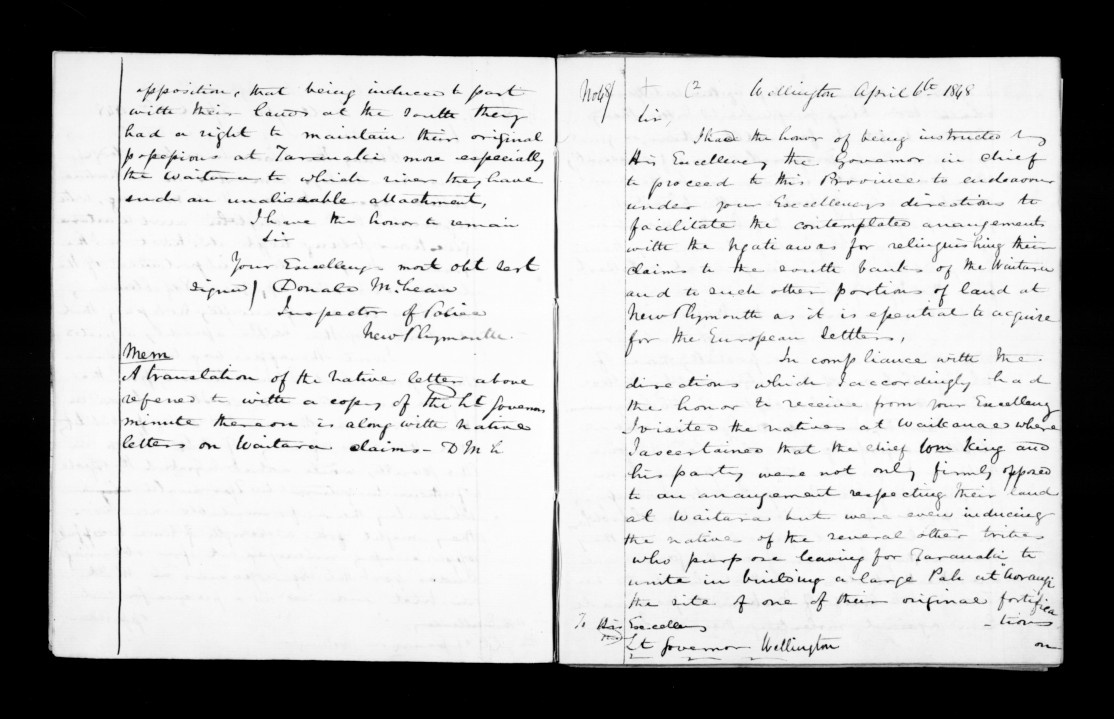 opposition, that being induced to part
with their lands at the South they
had a right to maintain their original
possessions at Taranaki more especially
the Waitara to which river they have
such an unalienable attachment,
I have the honor to remain
Sir
Your Excellencys most obt servt
signed / Donald McLean
Inspector of Police
New Plymouth.
Mem
A translation of the native letter above
refered to with a copy of the Lt Governors
minute thereon is along with native
letters on Waitara claims - D McL
No 48/ Wellington April 6th 1848
Sir
I had the honor of being instructed by
His Excellency the Governor in chief
to proceed to this Province to endeavour
under your Excellencys directions to
facilitate the contemplated arrangements
with the Ngatiawas for relinquishing their
claims to the south banks of the Waitara
and to such other portions of land at
New Plymouth as it is essential to acquire
for the European Settlers,
In compliance with the
directions which I accordingly had
the honor to receive from your Excellency
I visited the natives at Waikanae where
I ascertained that the chief Wm King and
his party were not only firmly opposed
to an arrangement respecting their land
at Waitara but were even inducing
the natives of the several other tribes
who purpose leaving for Taranaki to
unite in building a large Pah at
the site of one of their original fortifica
-tions
To His Excellency
Lt Governor Wellington
on